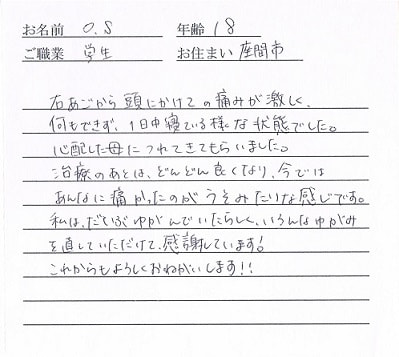 お名前 O.S 年齢 18
ご職業 学生 お住まい 座間市
右あごから頭にかけての痛みが激しく、
何もできず、1日中寝ている様な状態でした。
心配した母につれてきてもらいました。
治療のあとは、どんどん良くなり、今では
あんなに痛かったのがうそみたいな感じです。
私は、だいぶゆがんでいたらしく、いろんなゆがみ
を直していただけて、感謝しています!
これからもよろしくおねがいします!!